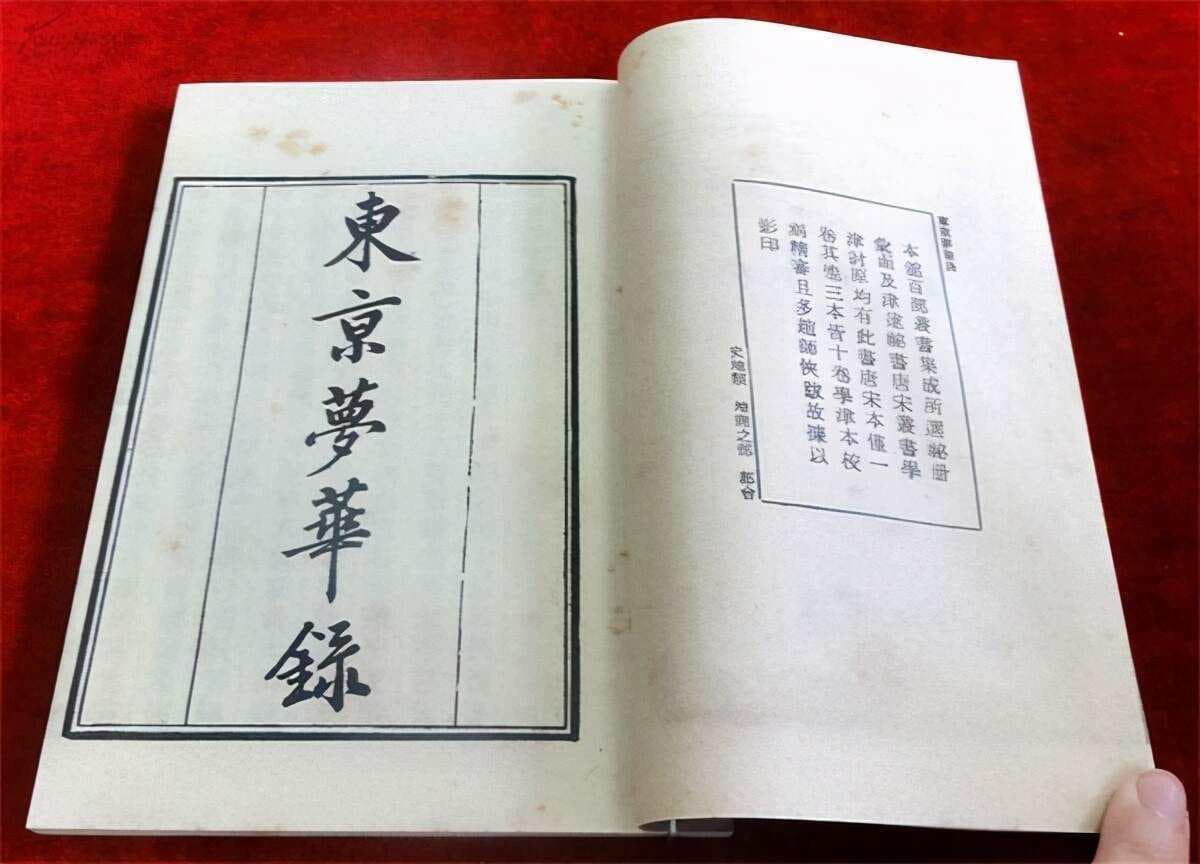 東京夢華錄
本館百部叢書集成所選祕冊
彙函及津逮祕書唐宋叢書學
津討原均有此書唐宋本僅一
卷其他三本皆十卷學津本校
精審且多趙師俠跋故據以
影印
史地類
東京夢華錄